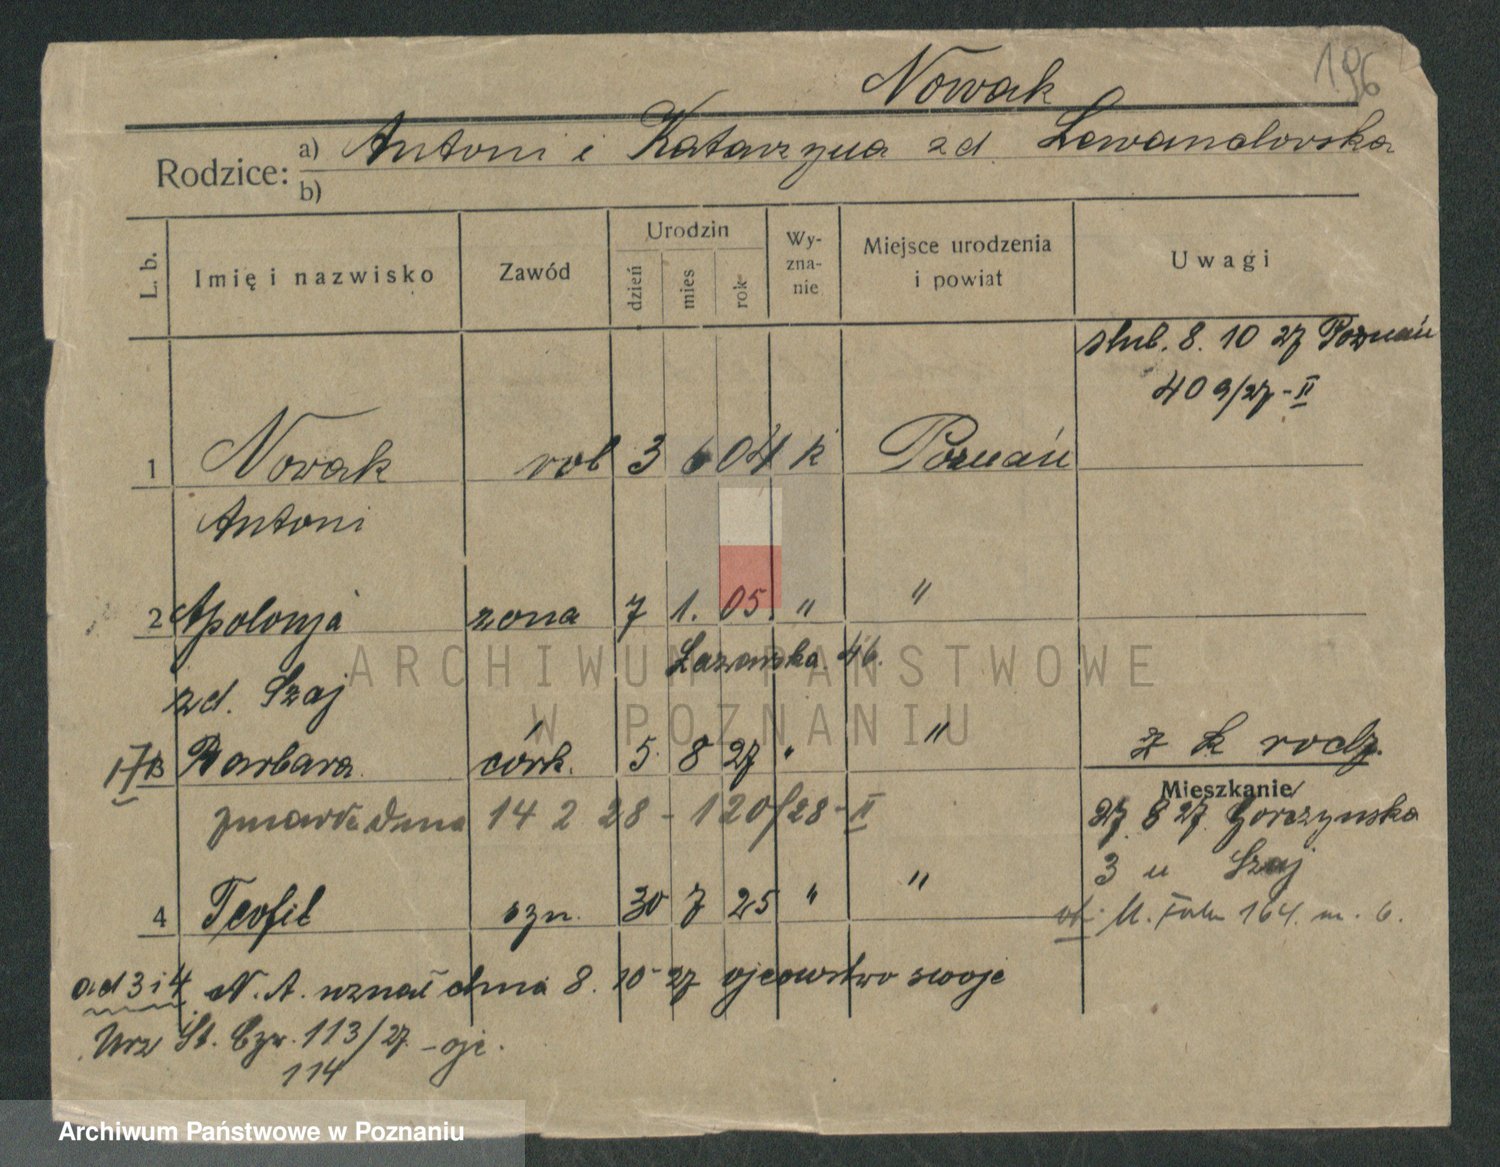 Nowak
196
Rodzice: a) Antoni i Katarzyna zd. Lewandowska
b)
L. b. Imię i nazwisko Zawód Urodzin dzień mies rok Wy-zna-nie Miejsce urodzenia i powiat Uwagi
slub. 8. 10 27 Poznań
409/27-II
1 Nowak rob 3 6 04 k Poznań
Antoni
2 Apolonja zona 7 1. 05. " "
Lazarska 46.
zd. Szaj
3 Barbara córk. 5 8 27 " " z k rodz.
Mieszkanie
zmarła dnia 14 2 28 - 120/28-II
27. 8 27. Gorczynska
3 u Szaj
4 Teofil szn. 30 7 25 " "
M. Focha 164. m. 6.
ad 3 i 4 N. A. uznał dnia 8. 10 27 ojcowstwo swoje
Urz St. Czw. 113/27 - ojc.
114
ARCHIWUM PAŃSTWOWE
W POZNANIU
Archiwum Państwowe w Poznaniu